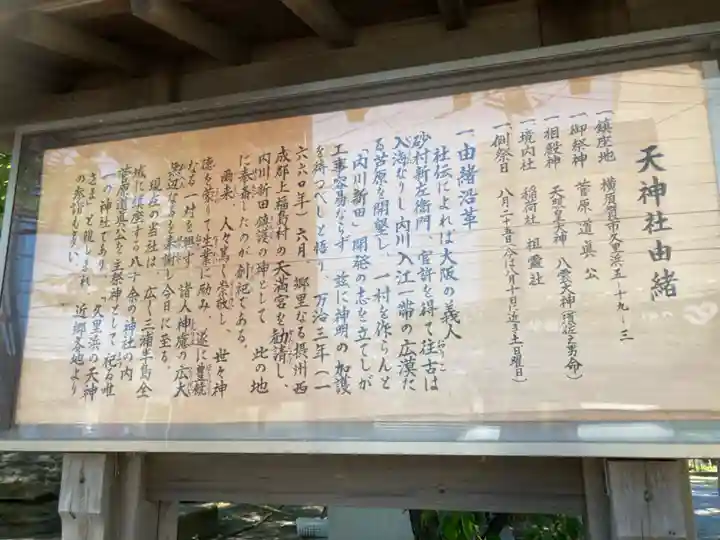 天神社由緒
一鎮座地 横須賀市久里浜五ー十九ー三
一御祭神 菅原道真公
一相殿神 天照皇大神 八雲大神(須佐之男命)
一境内社 稲荷社 祖霊社
一例祭日 八月二十五日(今は八月十日に近き土曜日)
一由緒沿革
社伝によれば大阪の義人
砂村新左衛門、官許を得て往古は
入海なりし内川入江一帯の広漠た
る芦原を開墾し、一村を作らんと
「内川新田」開発の志を立てしが
工事容易ならず 茲に神明の加護
を待つべしと悟り 万治三年(一
六六〇年)六月 郷里なる摂州西
成郡上福島村の天満宮を勧請し、
内川新田鎮護の神として 此の地
に奉斎したのが創祀である。
爾来 人々篤く崇敬し、世々神
徳を蒙りて生業に励み 遂に豊饒
なる一村を興す 諸人神慮の広大
無辺なるを奉謝し今日に至る。
現在の当社は 広く三浦半島全
域に鎮座する八十余の神社の内
菅原道真公を主祭神として祀る唯
一の神社であり 「久里浜の天神
さま」と親しまれ 近郷各地より
の参詣も多い